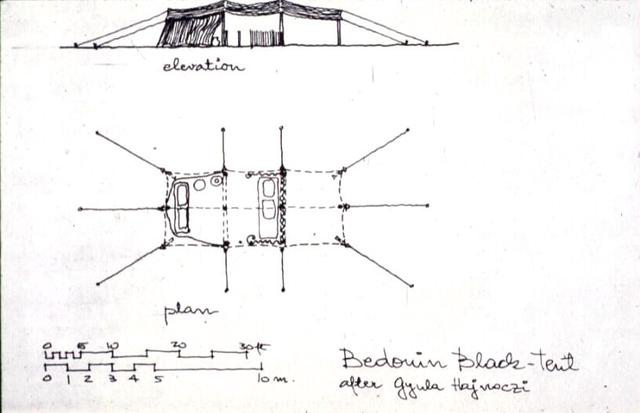 elevation
plan
0 5 10 20 30 ft
0 1 2 3 4 5 10 m.
Bedouin Black-Tent
after Gyula Hajnoczi